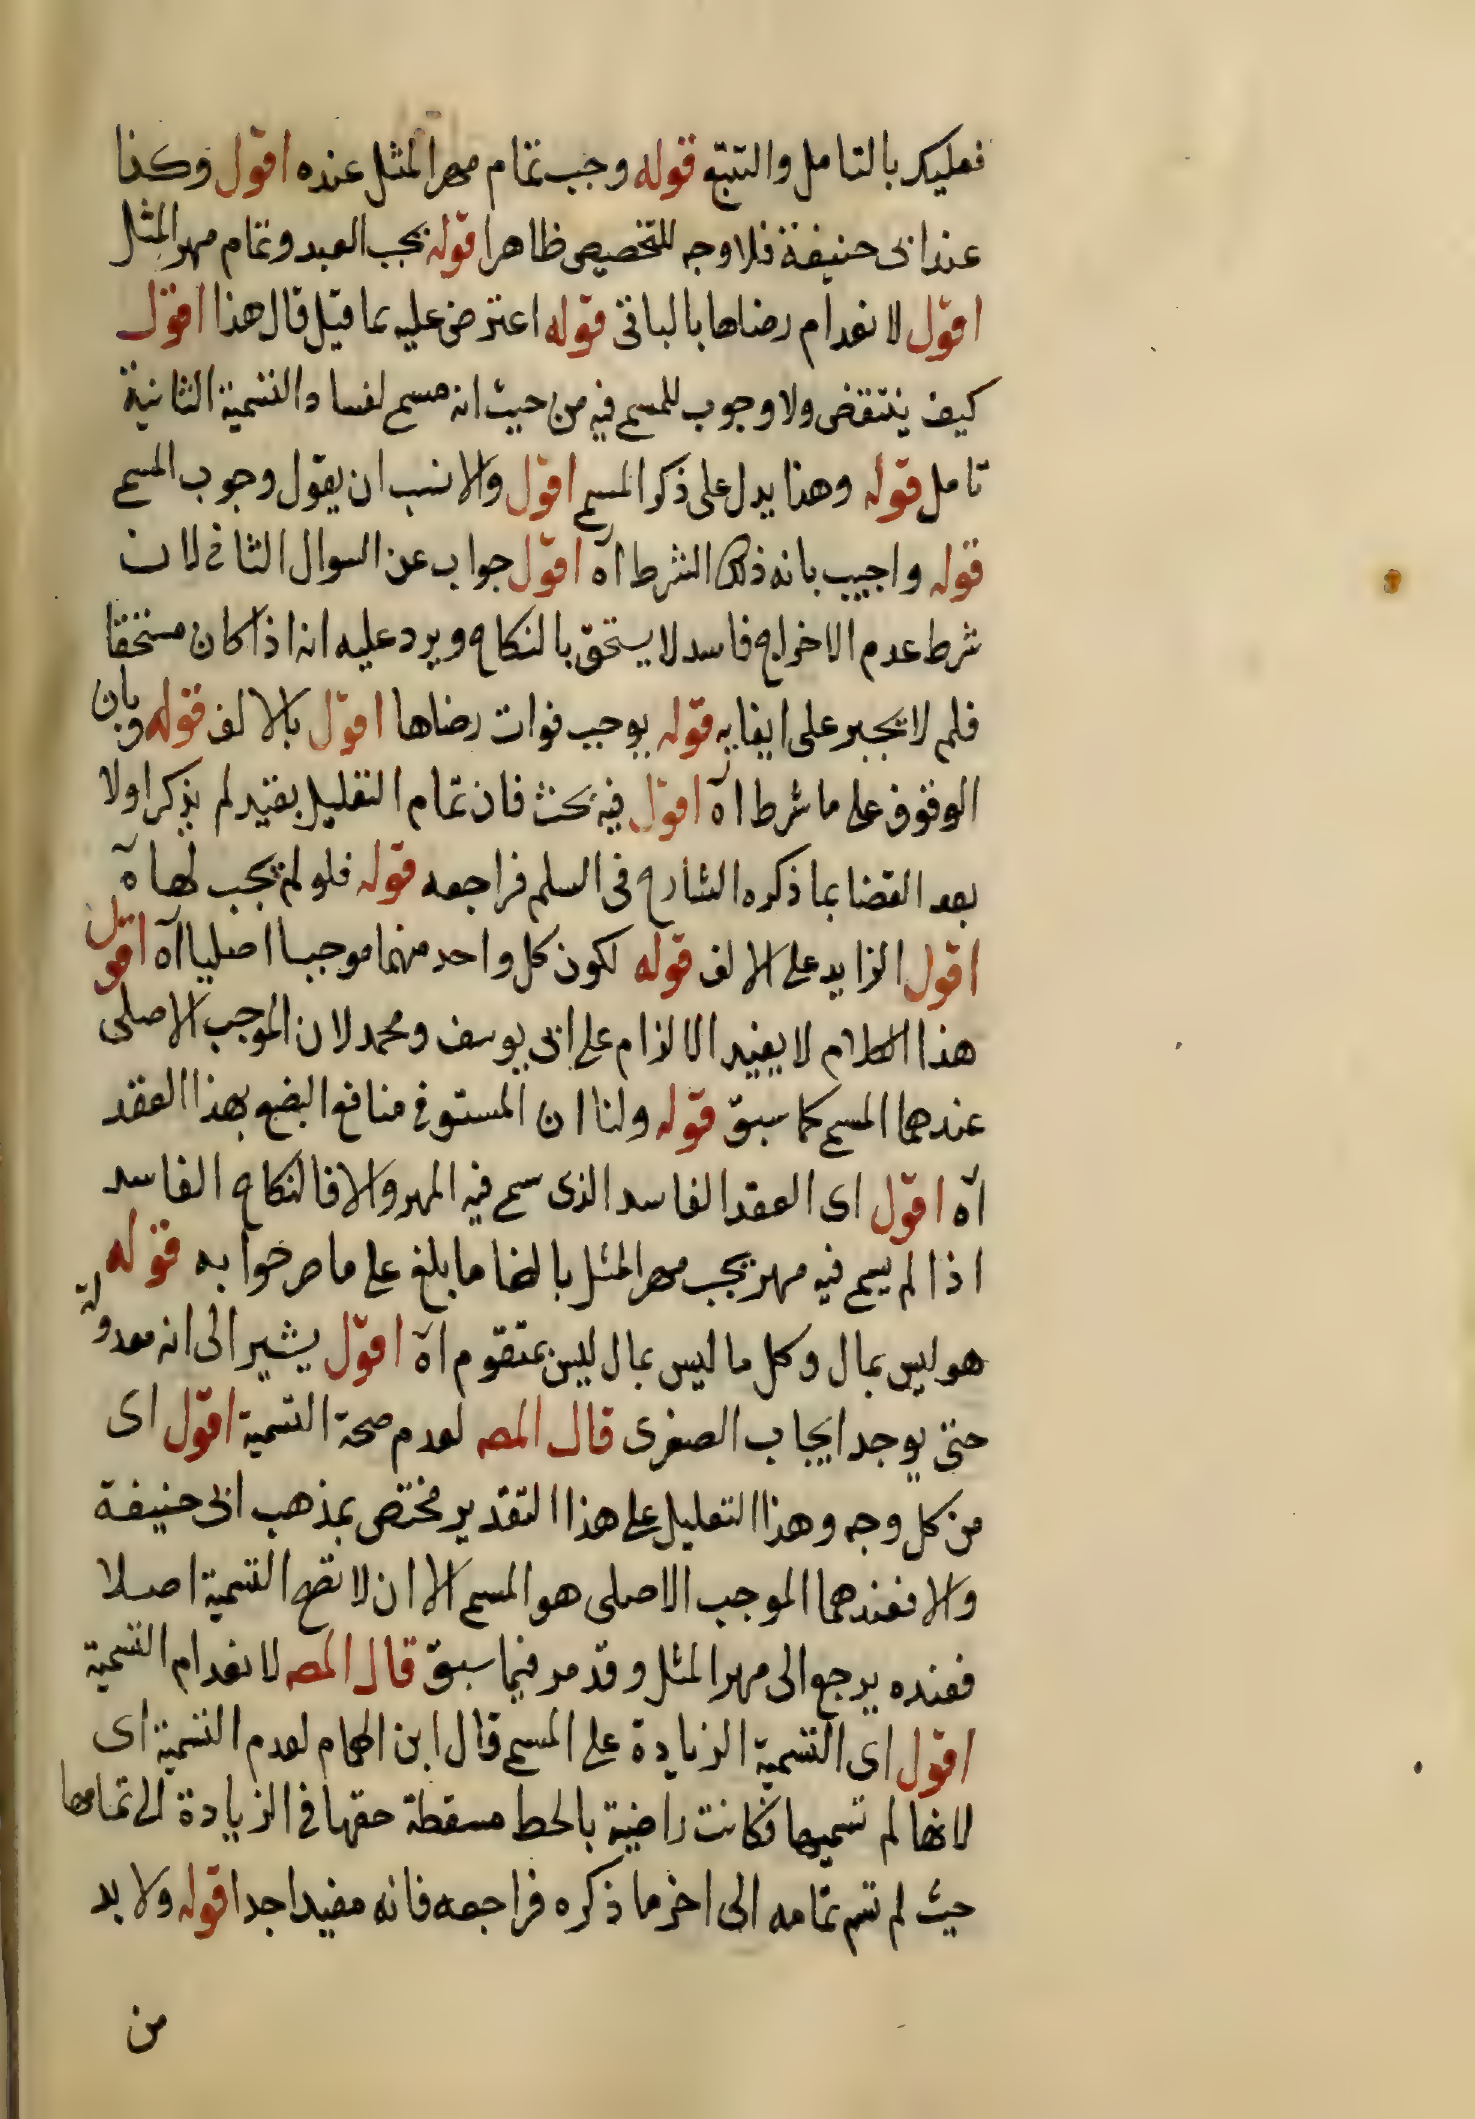 فعليك بالتامل والتتبع قوله وجب تمام مهر المثل عنده اقول وكذا
عند ابى حنيفة فلا وجه للتخصيص ظاهرا قوله يجب العبد وتمام مهر المثل
اقول لانعدام رضاها بالباقى قوله اعترض عليه بما قيل قال هذا اقول
كيف ينتقض ولا وجوب للمسمى فيه من حيث انه مسمى لفساد التسمية الثانية
تامل قوله وهذا يدل على ذكر المسمى اقول والانسب ان يقول وجوب المسمى
قوله واجيب بانه ذلك الشرط اه اقول جواب عن السوال الثانى لان
شرط عدم الاخراج فاسد لا يستحق بالنكاح ويرد عليه انه اذا كان مستحقا
فلم لا تجبر على ايفايه قوله يوجب فوات رضاها اقول بالالف قوله وبان
الوقوف على ما شرط اه اقول فيه بحث فان تمام التعليل بقيد لم يذكر اولا
بعد القضا بما ذكره الشارح فى السلم فراجعه قوله فلو لم يجب لها اه
اقول الزايد على الالف قوله لكون كل واحد منهما موجبا اصليا اه اقول
هذا الكلام لا يفيد الالزام على ابى يوسف ومحمد لان الموجب الاصلى
عندهما المسمى كما سبق قوله ولنا ان المستوفى منافع البضع بهذا العقد
اه اقول اى العقد الفاسد الذى سمى فيه المهر والا فالنكاح الفاسد
اذا لم يسمى فيه مهر يجب مهر المثل بالغا ما بلغ على ما صرحوا به قوله
هو ليس بمال وكل ما ليس بمال ليس بمتقوم اه اقول يشير الى انه معدولة
حتى يوجد ايجاب الصغرى قال المصه لعدم صحة التسمية اقول اى
من كل وجه وهذا التعليل على هذا التقدير مختص بمذهب ابى حنيفة
والا فعندهما الموجب الاصلى هو المسمى الا ان لا تصح التسمية اصلا
فعنده يرجع الى مهر المثل وقد مر فيما سبق قال المصه لانعدام التسمية
اقول اى التسمية الزيادة على المسمى قال ابن الهمام لعدم التسمية اى
لانها لم تسميها فكانت راضية بالحط مسقطة حقها فى الزيادة الى تمامها
حيث لم تسم تمامه الى اخر ما ذكره فراجعه فانه مفيد اجدا قوله ولا بد
من